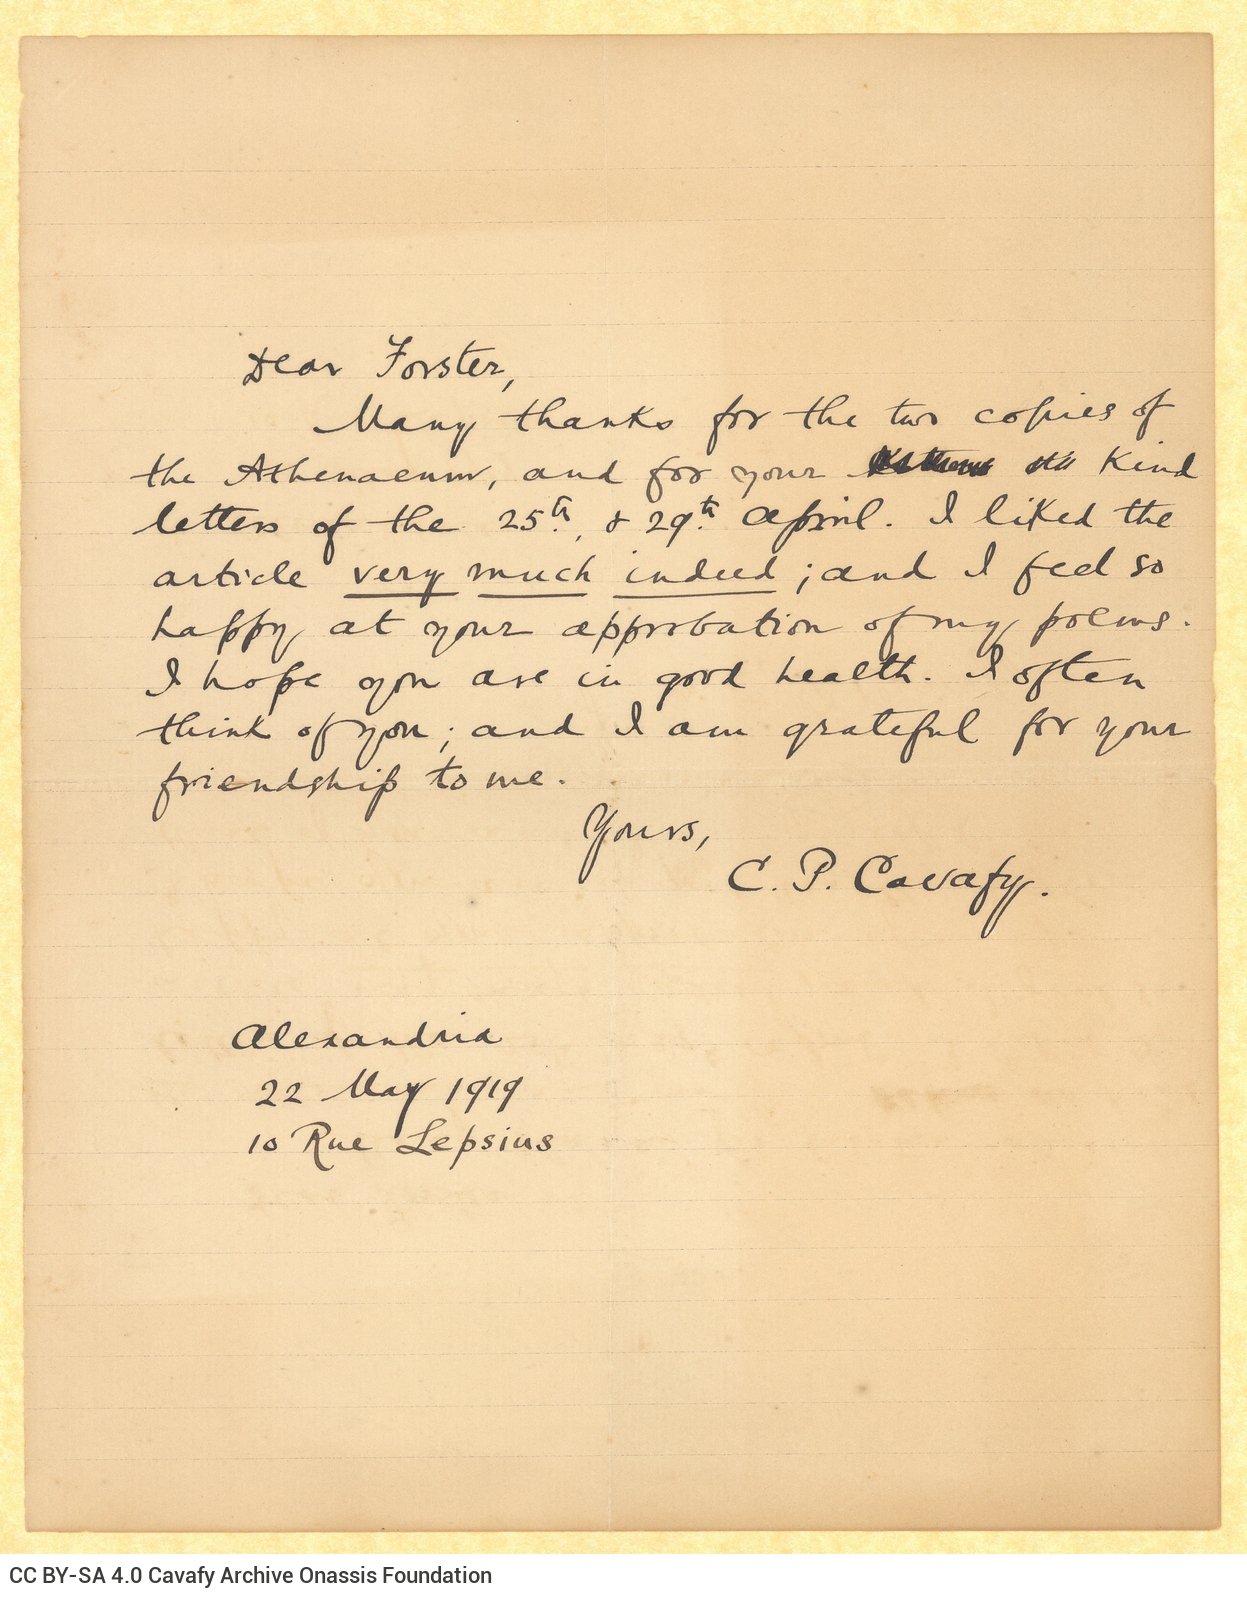 Dear Forster,
Many thanks for the two copies of
the Athenaeum, and for your kind
letters of the 25th, & 29th. April. I liked the
article very much indeed; and I feel so
happy at your approbation of my poems.
I hope you are in good health. I often
think of you; and I am grateful for your
friendship to me.
Yours,
C. P. Cavafy.
Alexandria
22 May 1919
10 Rue Lepsius
CC BY-SA 4.0 Cavafy Archive Onassis Foundation